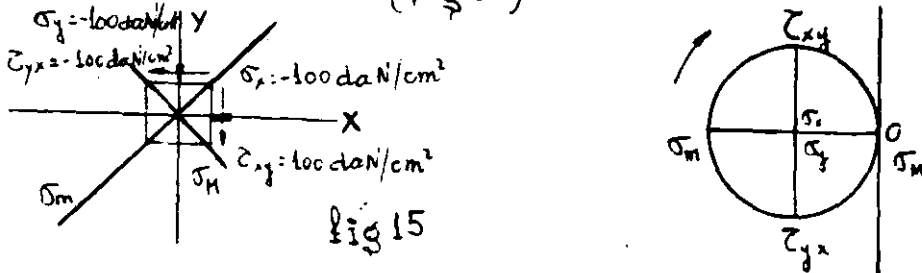 σy=-100daN/cm² Y
τyx=-100daN/cm²
σx=-100daN/cm²
X
τxy=100daN/cm²
σm
σM
fig 15
τxy
σx
σy
σm
O
σM
τyx